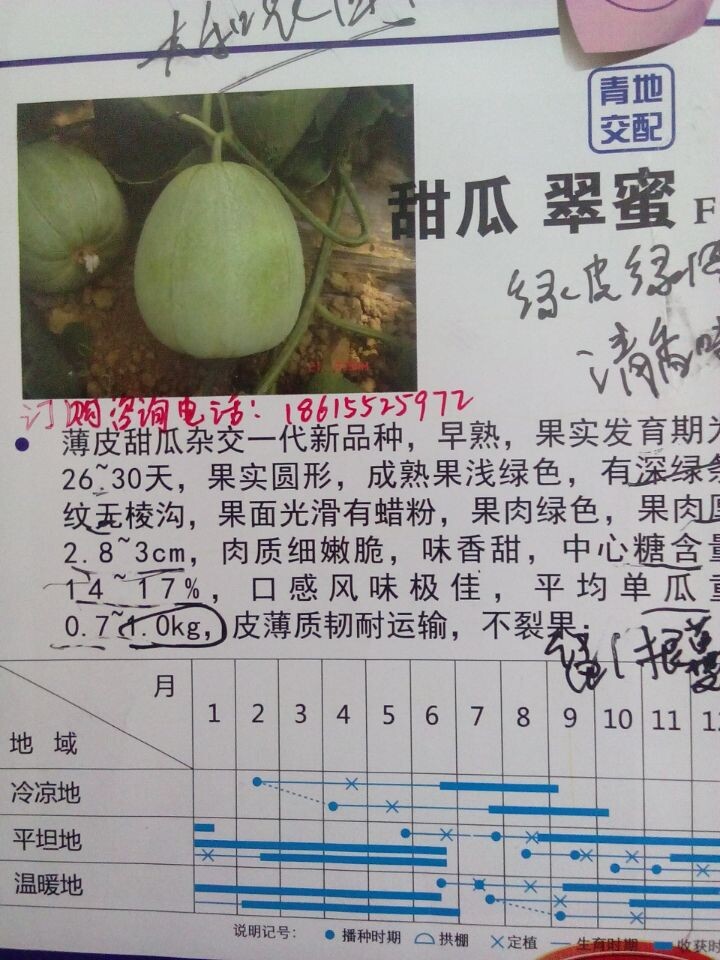 青地
交配
甜瓜 翠蜜 F
绿皮绿
清香味
订购咨询电话：18615525972
● 薄皮甜瓜杂交一代新品种，早熟，果实发育期为
26~30天，果实圆形，成熟果浅绿色，有深绿条
纹无棱沟，果面光滑有蜡粉，果肉绿色，果肉厚
2.8~3cm，肉质细嫩脆，味香甜，中心糖含量
14~17%，口感风味极佳，平均单瓜重
0.7~1.0kg，皮薄质韧耐运输，不裂果；
月 1 2 3 4 5 6 7 8 9 10 11 12
地 域
冷凉地
平坦地
温暖地
说明记号： 播种时期 拱棚 定植 生育时期 收获时